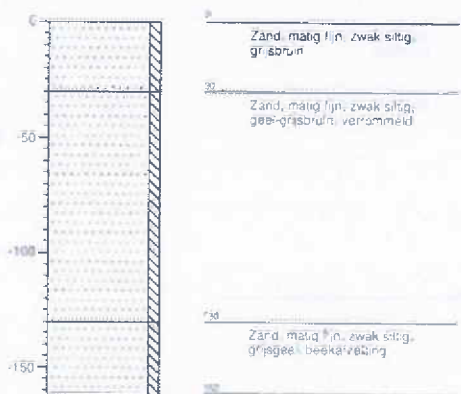 0
Zand, matig fijn, zwak siltig,
grijsbruin
30
Zand, matig fijn, zwak siltig,
geel-grijsbruin, verrommeld
-50
-100
130
Zand, matig fijn, zwak siltig,
grijsgeel,
-150